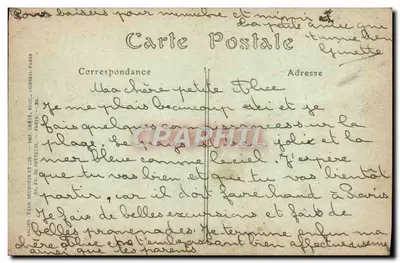 Bons baisers pour mumiche et
La petite amie qui
Ginette
Carte Postale
Correspondance
Adresse
Ma chère petite Alice
Je me plais beaucoup ici et je
fais quelques connaissances sur la
plage. Le pays est joli et la
mer bleue comme le ciel. J'espère
que tu vas bien et que tu vas bientôt
partir, car il doit faire chaud à Paris
Je fais de belles excursions et fais de
belles promenades. Je termine enfin ma
chère Alice en t'embrassant bien affectueusement
ainsi que tes parents
CARPHIL